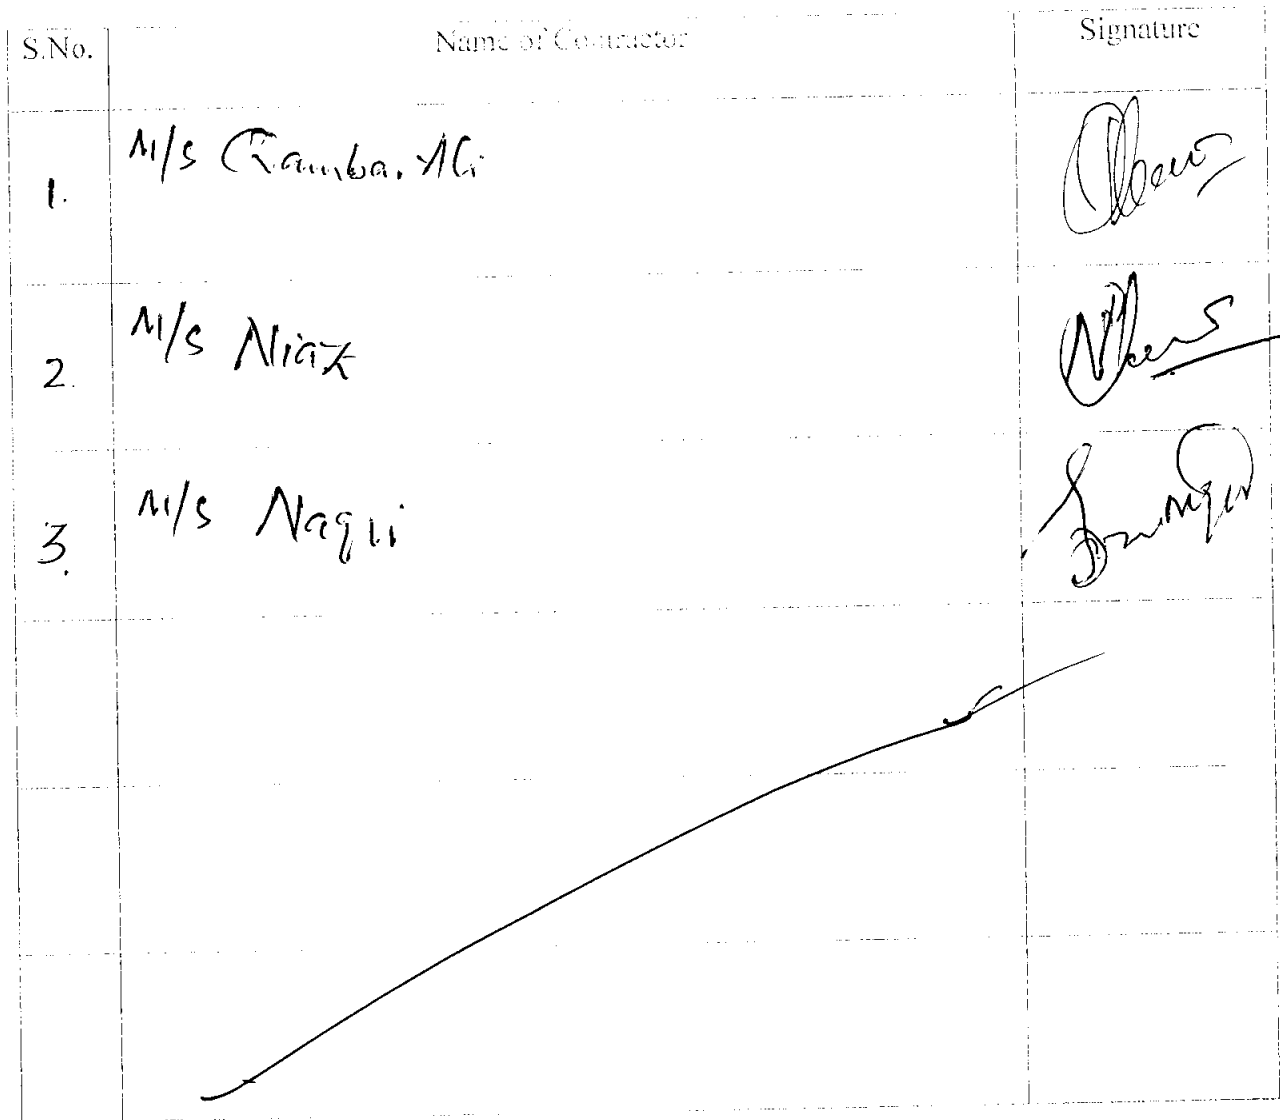 S.No. Name of Contractor Signature
1. M/s Qamba. Ali
2. M/s Niaz
3. M/s Naqvi